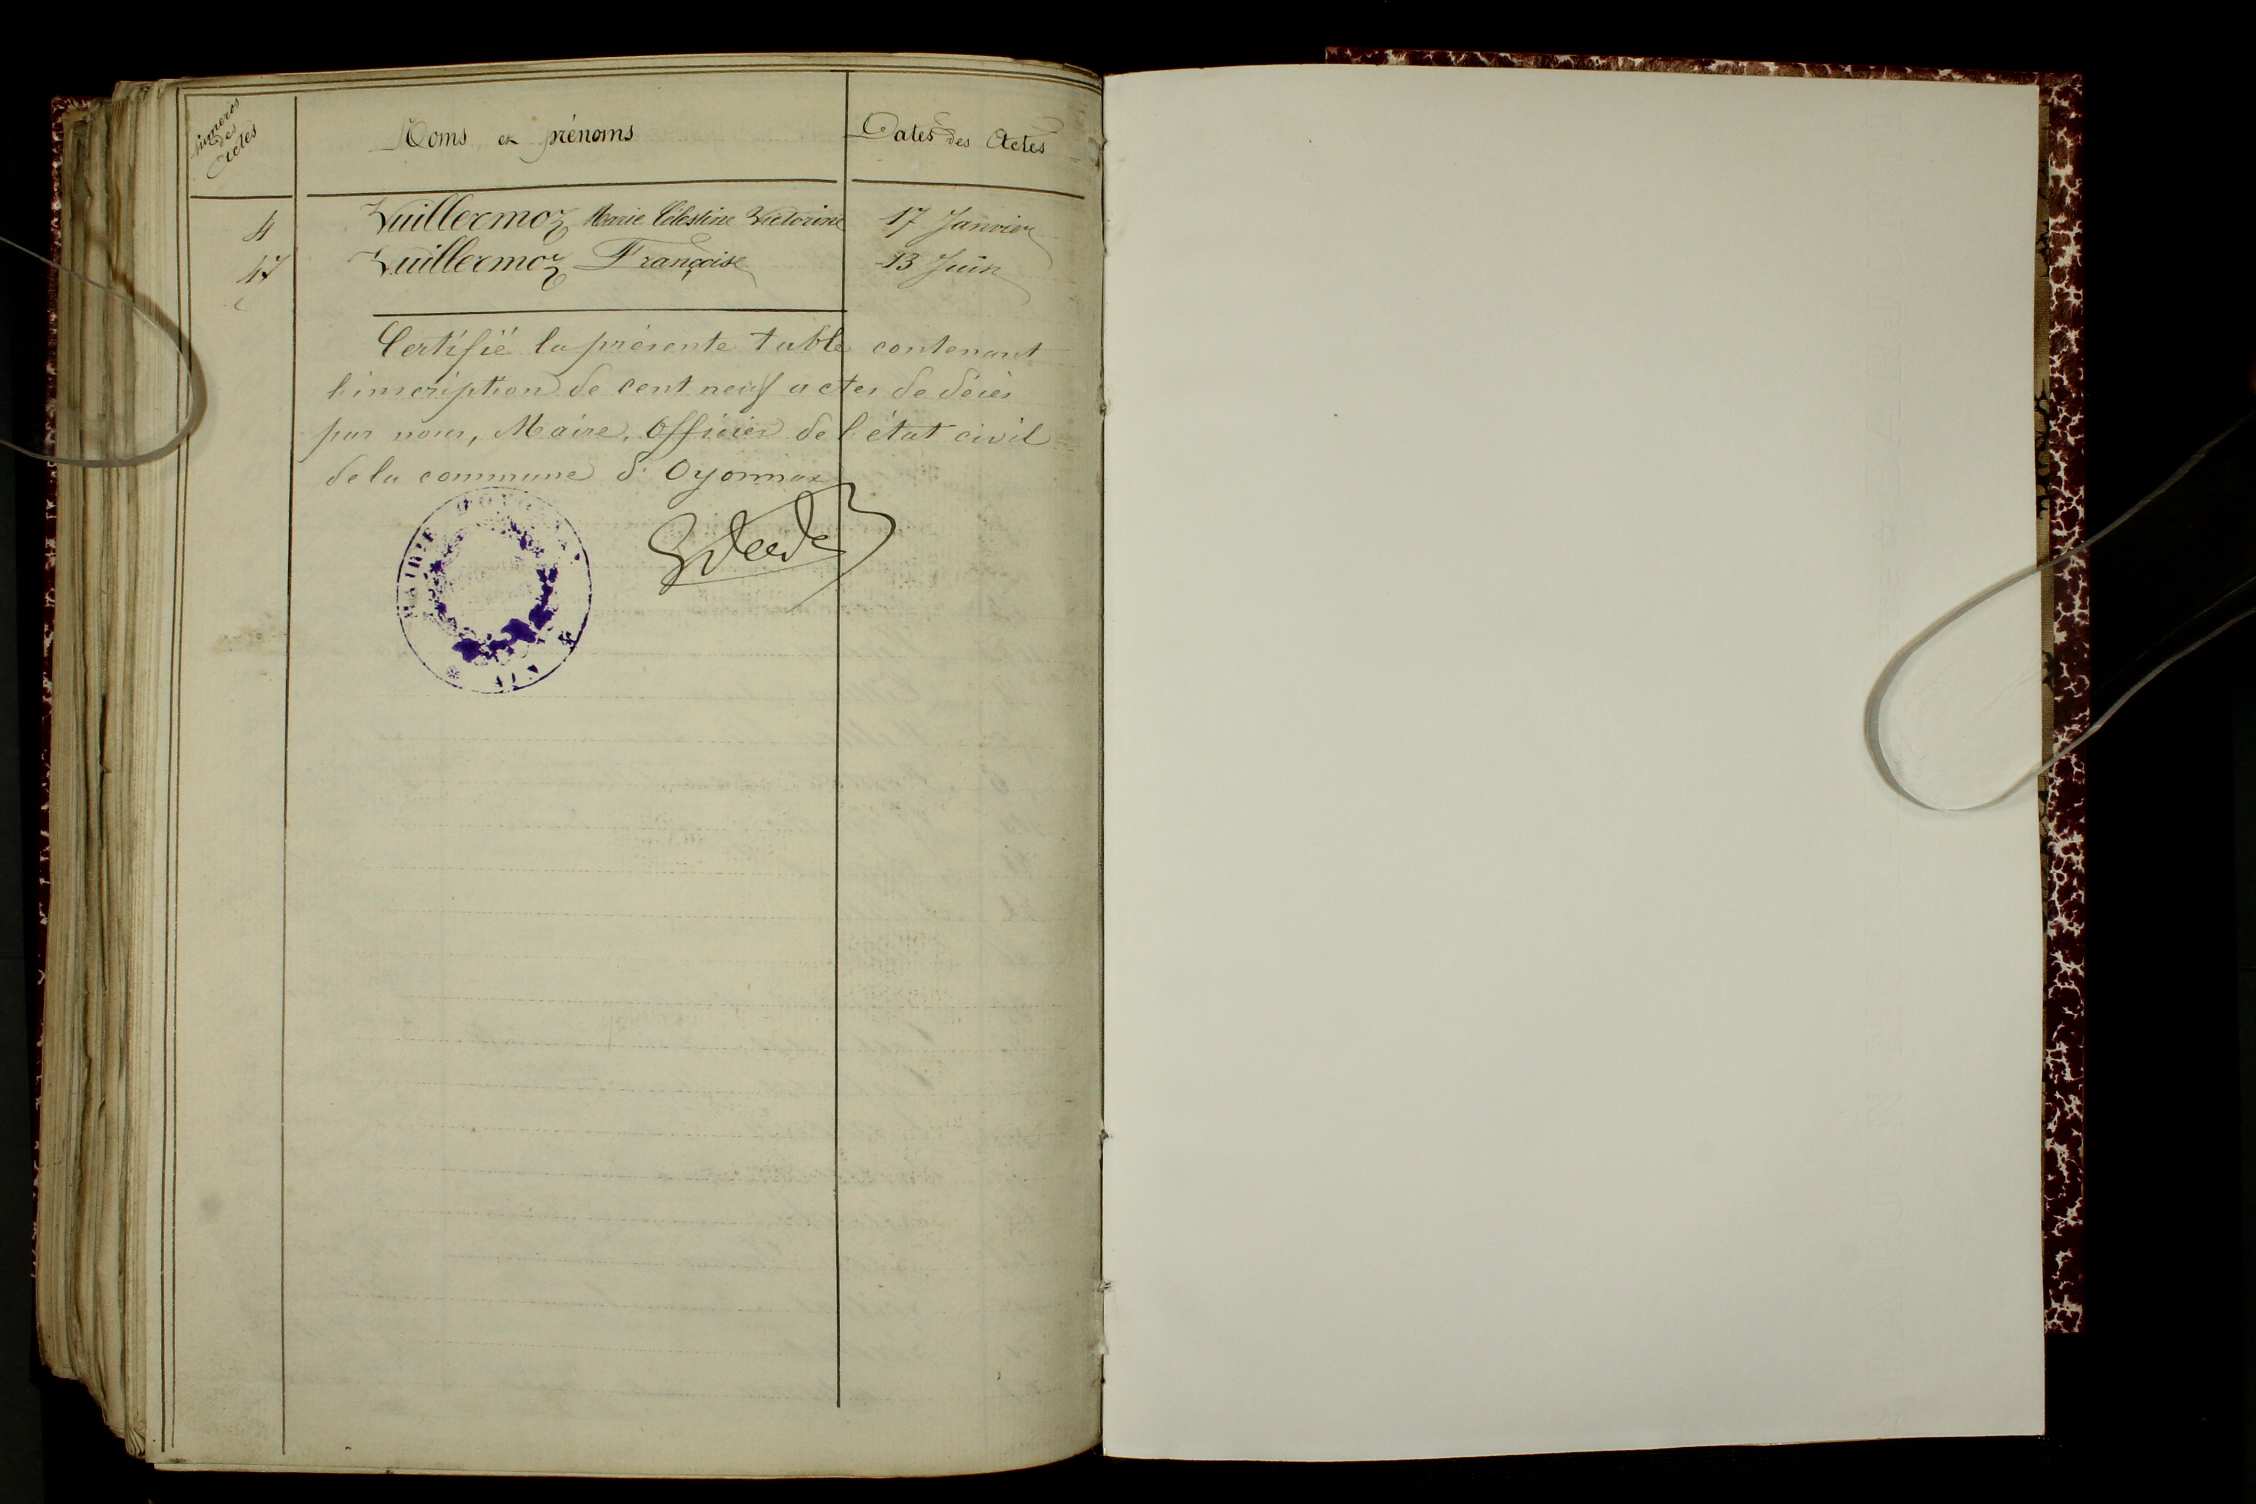 Numéros des Actes
Noms et prénoms
Dates des Actes
4 Vuillermoz Marie Célestine Victorine 17 Janvier
47 Vuillermoz Françoise 13 Juin
Certifié la présente table contenant
l'inscription de cent neuf actes de décès
par nous, Maire, Officier de l'état civil
de la commune d'Oyonnax
MAIRIE D'OYONNAX
* AIN *